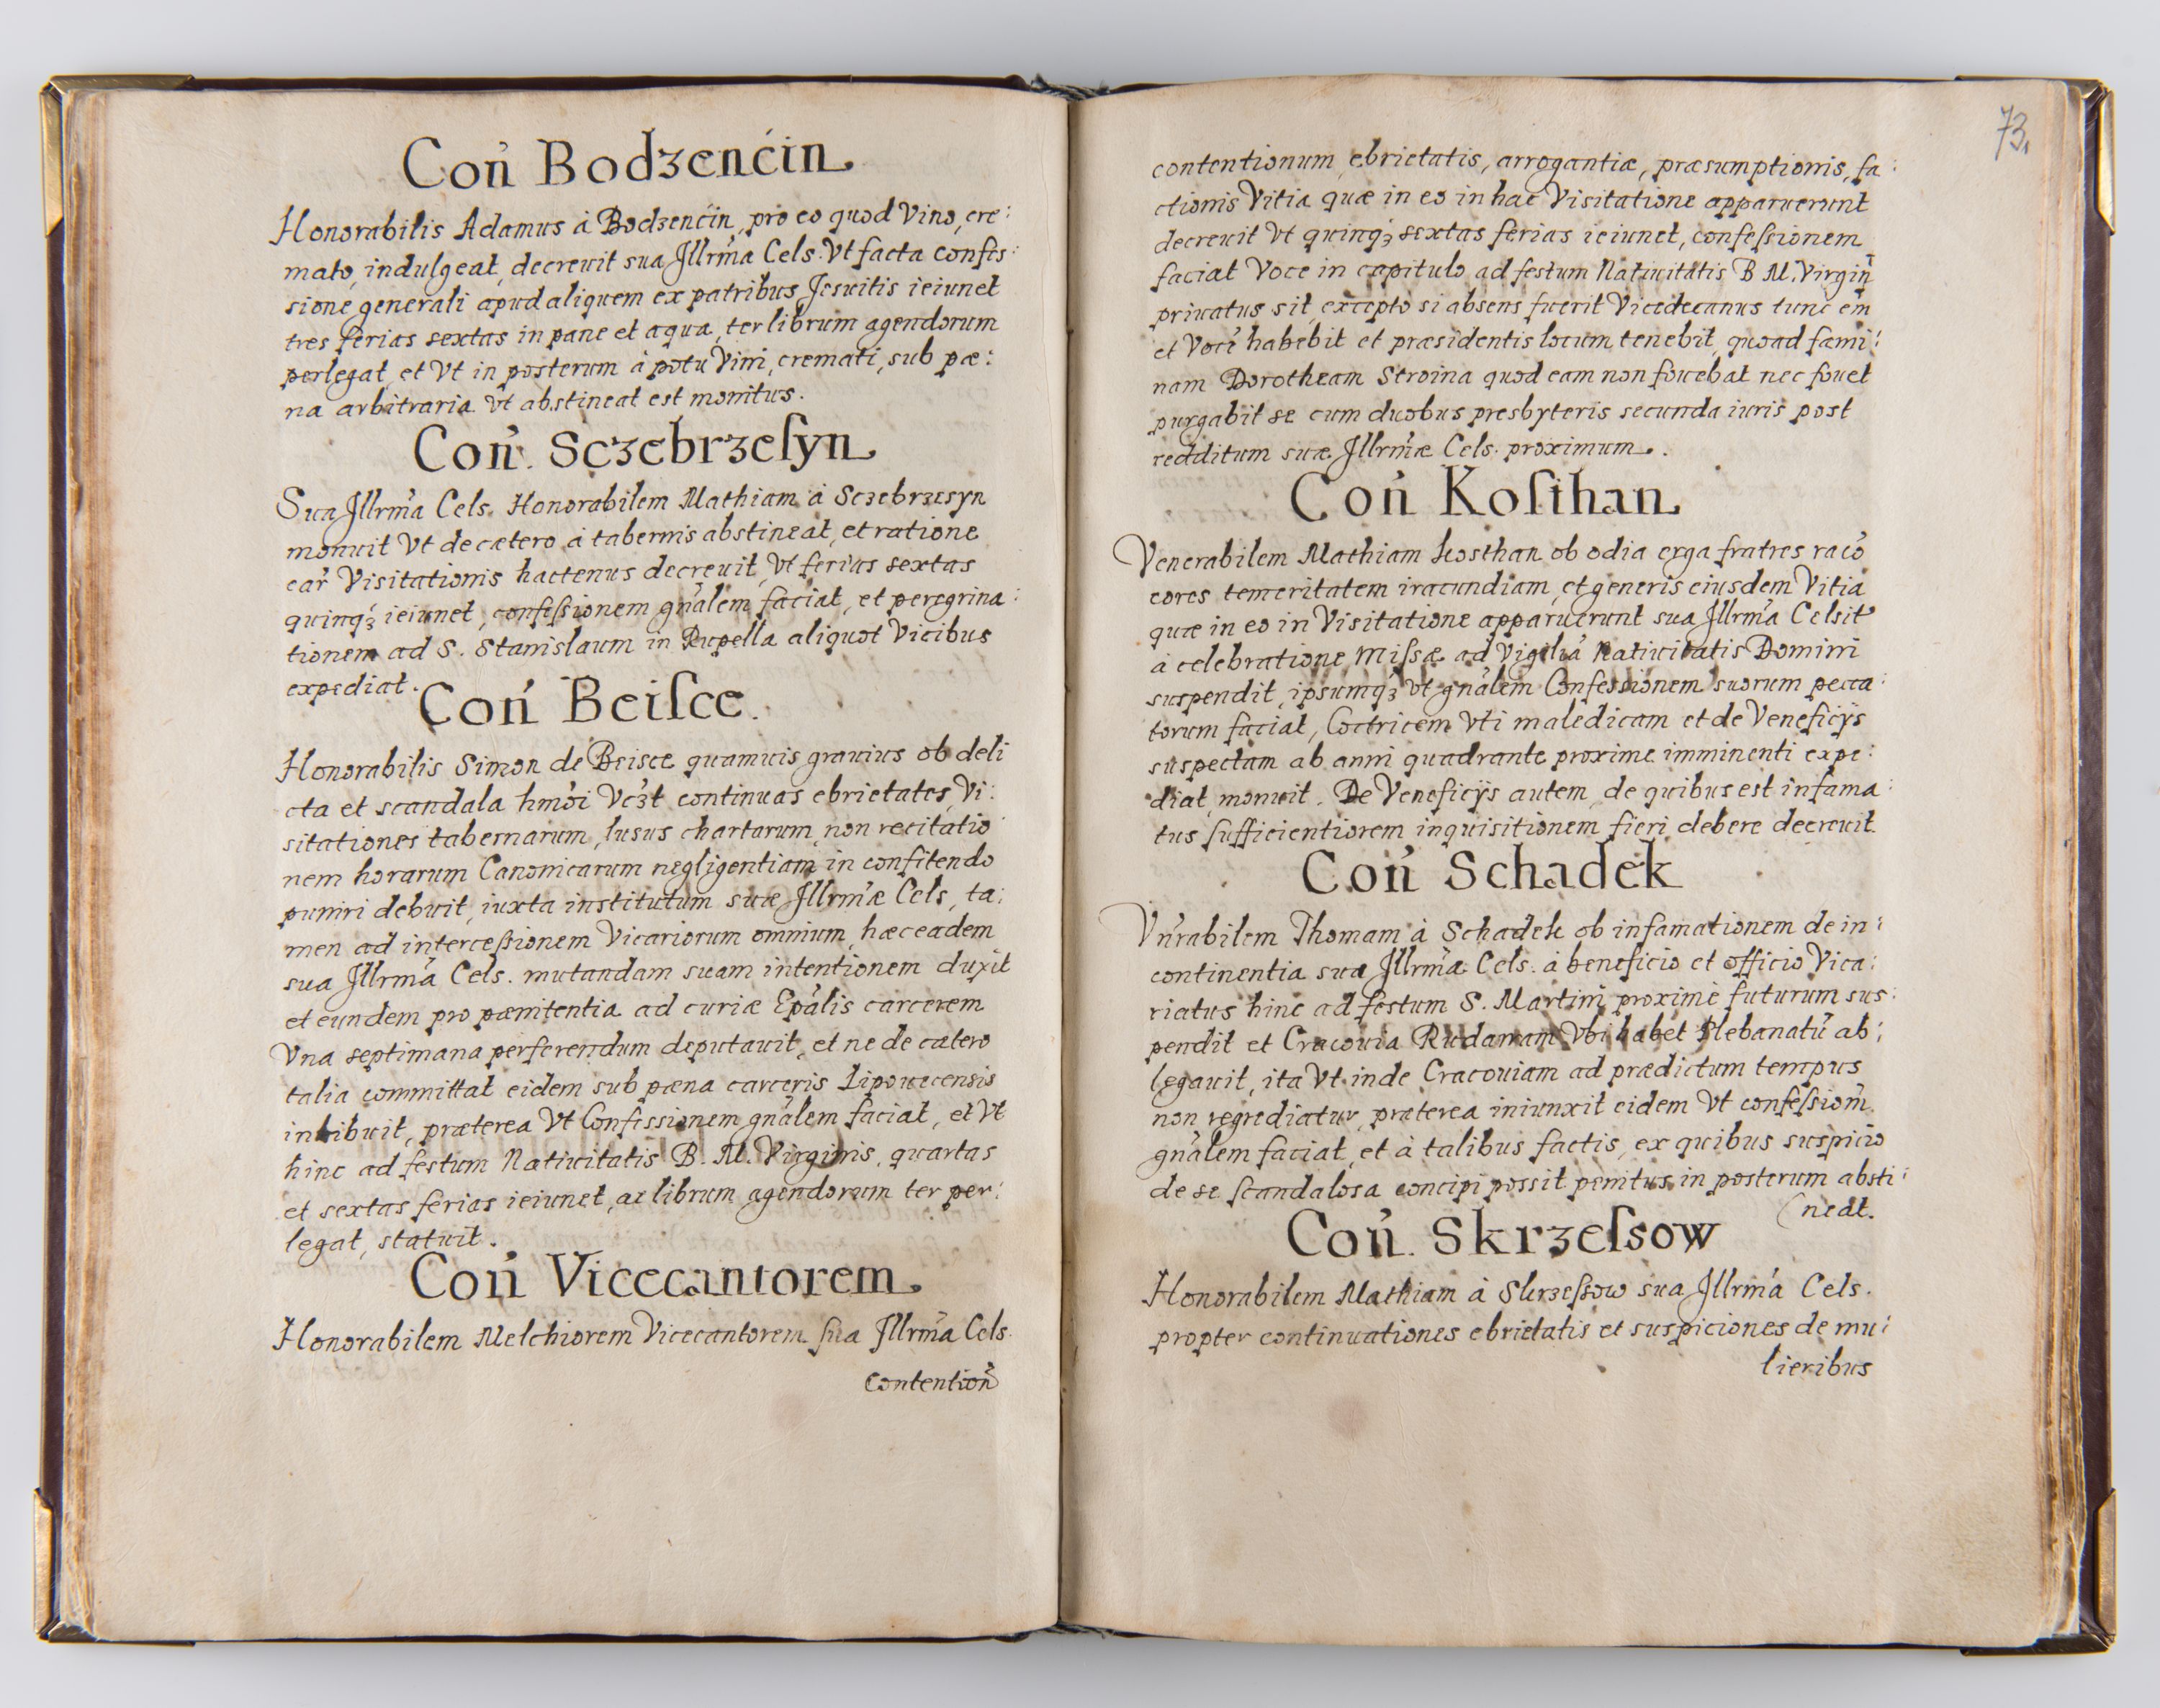 Con̄ Bodzenćin
Honorabilis Adamus à Bodzenćin, pro eo quod Vino, cre:
mato, indulgeat, decreuit sua Jllrm̃a Cels: Vt facta confes:
sione generali apud aliquem ex patribus Jesuitis ieiunet
tres ferias sextas in pane et aqua, ter librum agendorum
perlegat, et Vt in posterum à potu Vini, cremati, sub pæ:
na arbitraria Vt abstineat est monitus.
Con̄. Sczebrzeſyn
Sua Jllrm̃a Cels. Honorabilem Mathiam à Sczebrzesyn
monuit Vt de cætero à tabernis abstineat, et ratione
ear̃ Visitationis hactenus decreuit, Vt ferias sextas
quinqȝ ieiunet, confeſsionem gn̄alem faciat, et peregrina:
tionem ad S. Stanislaum in Rupella aliquot Vicibus
expediat.
Con̄ Beiſce.
Honorabilis Simon de Beisce quamuis grauius ob deli
cta et scandala hmõi Vcȝt continuas ebrietates, Vi:
sitationes tabernarum, lusus chartarum, non recitatio
nem horarum Canonicarum negligentiam in confitendo
puniri debuit, iuxta institutum suæ Jllrm̃æ Cels, ta:
men ad interceſsionem Vicariorum omnium, hæc eadem
sua Jllrm̃a Cels. mutandam suam intentionem duxit
et eundem pro pænitentia ad curiæ Ep̃alis carcerem
Vna septimana perferendum deputauit, et ne de cætero
talia committat eidem sub pæna carceris Lipouecensis
inhibuit, præterea Vt Confessionem gn̄alem faciat, et Vt
hinc ad festum Natiuitatis B. M. Virginis, quartas
et sextas ferias ieiunet, ac librum agendorum ter per:
legat, statuit.
Con̄ Vicecantorem
Honorabilem Melchiorem Vicecantorem ſua Jllrm̃a Cels.
Contention̄
73.
contentionum, ebrietatis, arrogantiæ, præsumptionis, fa:
ctionis Vitia quæ in eo in hac Visitatione apparuerunt
decreuit Vt quinqȝ sextas ferias ieiunet, confeſsionem
faciat Voce in capitulo ad festum Natiuitatis B M. Virgin̄
priuatus sit, excepto si absens fuerit Vicedecanus tunc em̃
et Vocẽ habebit et præsidentis locum tenebit, quoad fami:
nam Dorotheam Stroina quod eam non fouebat nec fouet
purgabit se cum duobus presbyteris secunda iuris post
redditum suæ Jllrm̃æ Cels: proximum.
Con̄ Koſthan
Venerabilem Mathiam Kosthan ob odia erga fratres racõ
cores temeritatem iracundiam, et generis eiusdem Vitia
quæ in eo in Visitatione apparuerunt sua Jllrm̃a Celsit
à celebratione Miſsæ ad Vigiliã Natiuitatis Domini
suspendit, ipsumqȝ Vt gn̄alem Confessionem suorum pecca:
torum faciat, Coctricem Vti maledicam et de Veneficÿs
suspectam ab anni quadrante proxime imminenti expe:
diat, monuit. De Veneficÿs autem, de quibus est infama:
tus ſufficientiorem inquisitionem fieri debere decreuit.
Con̄ Schadek
Vn̄rabilem Thomam à Schadek ob infamationem de in:
continentia sua Jllrm̃a Cels. à beneficio et officio Vica:
riatus hinc ad festum S. Martini proximè futurum sus:
pendit et Cracouia Rudawam Vbi habet Plebanatũ ab:
legauit, ita Vt inde Cracouiam ad prædictum tempus
non regrediatur, præterea iniunxit eidem Vt confeſsiom̃
gn̄alem faciat, et à talibus factis, ex quibus suspicio
de se ſcandalosa concipi possit penitus in posterum absti:
(neat.
Con̄. Skrzeſsow
Honorabilem Mathiam à Skrzeſsow sua Jllrm̃a Cels.
propter continuationes ebrietatis et suspiciones de mu:
lieribus